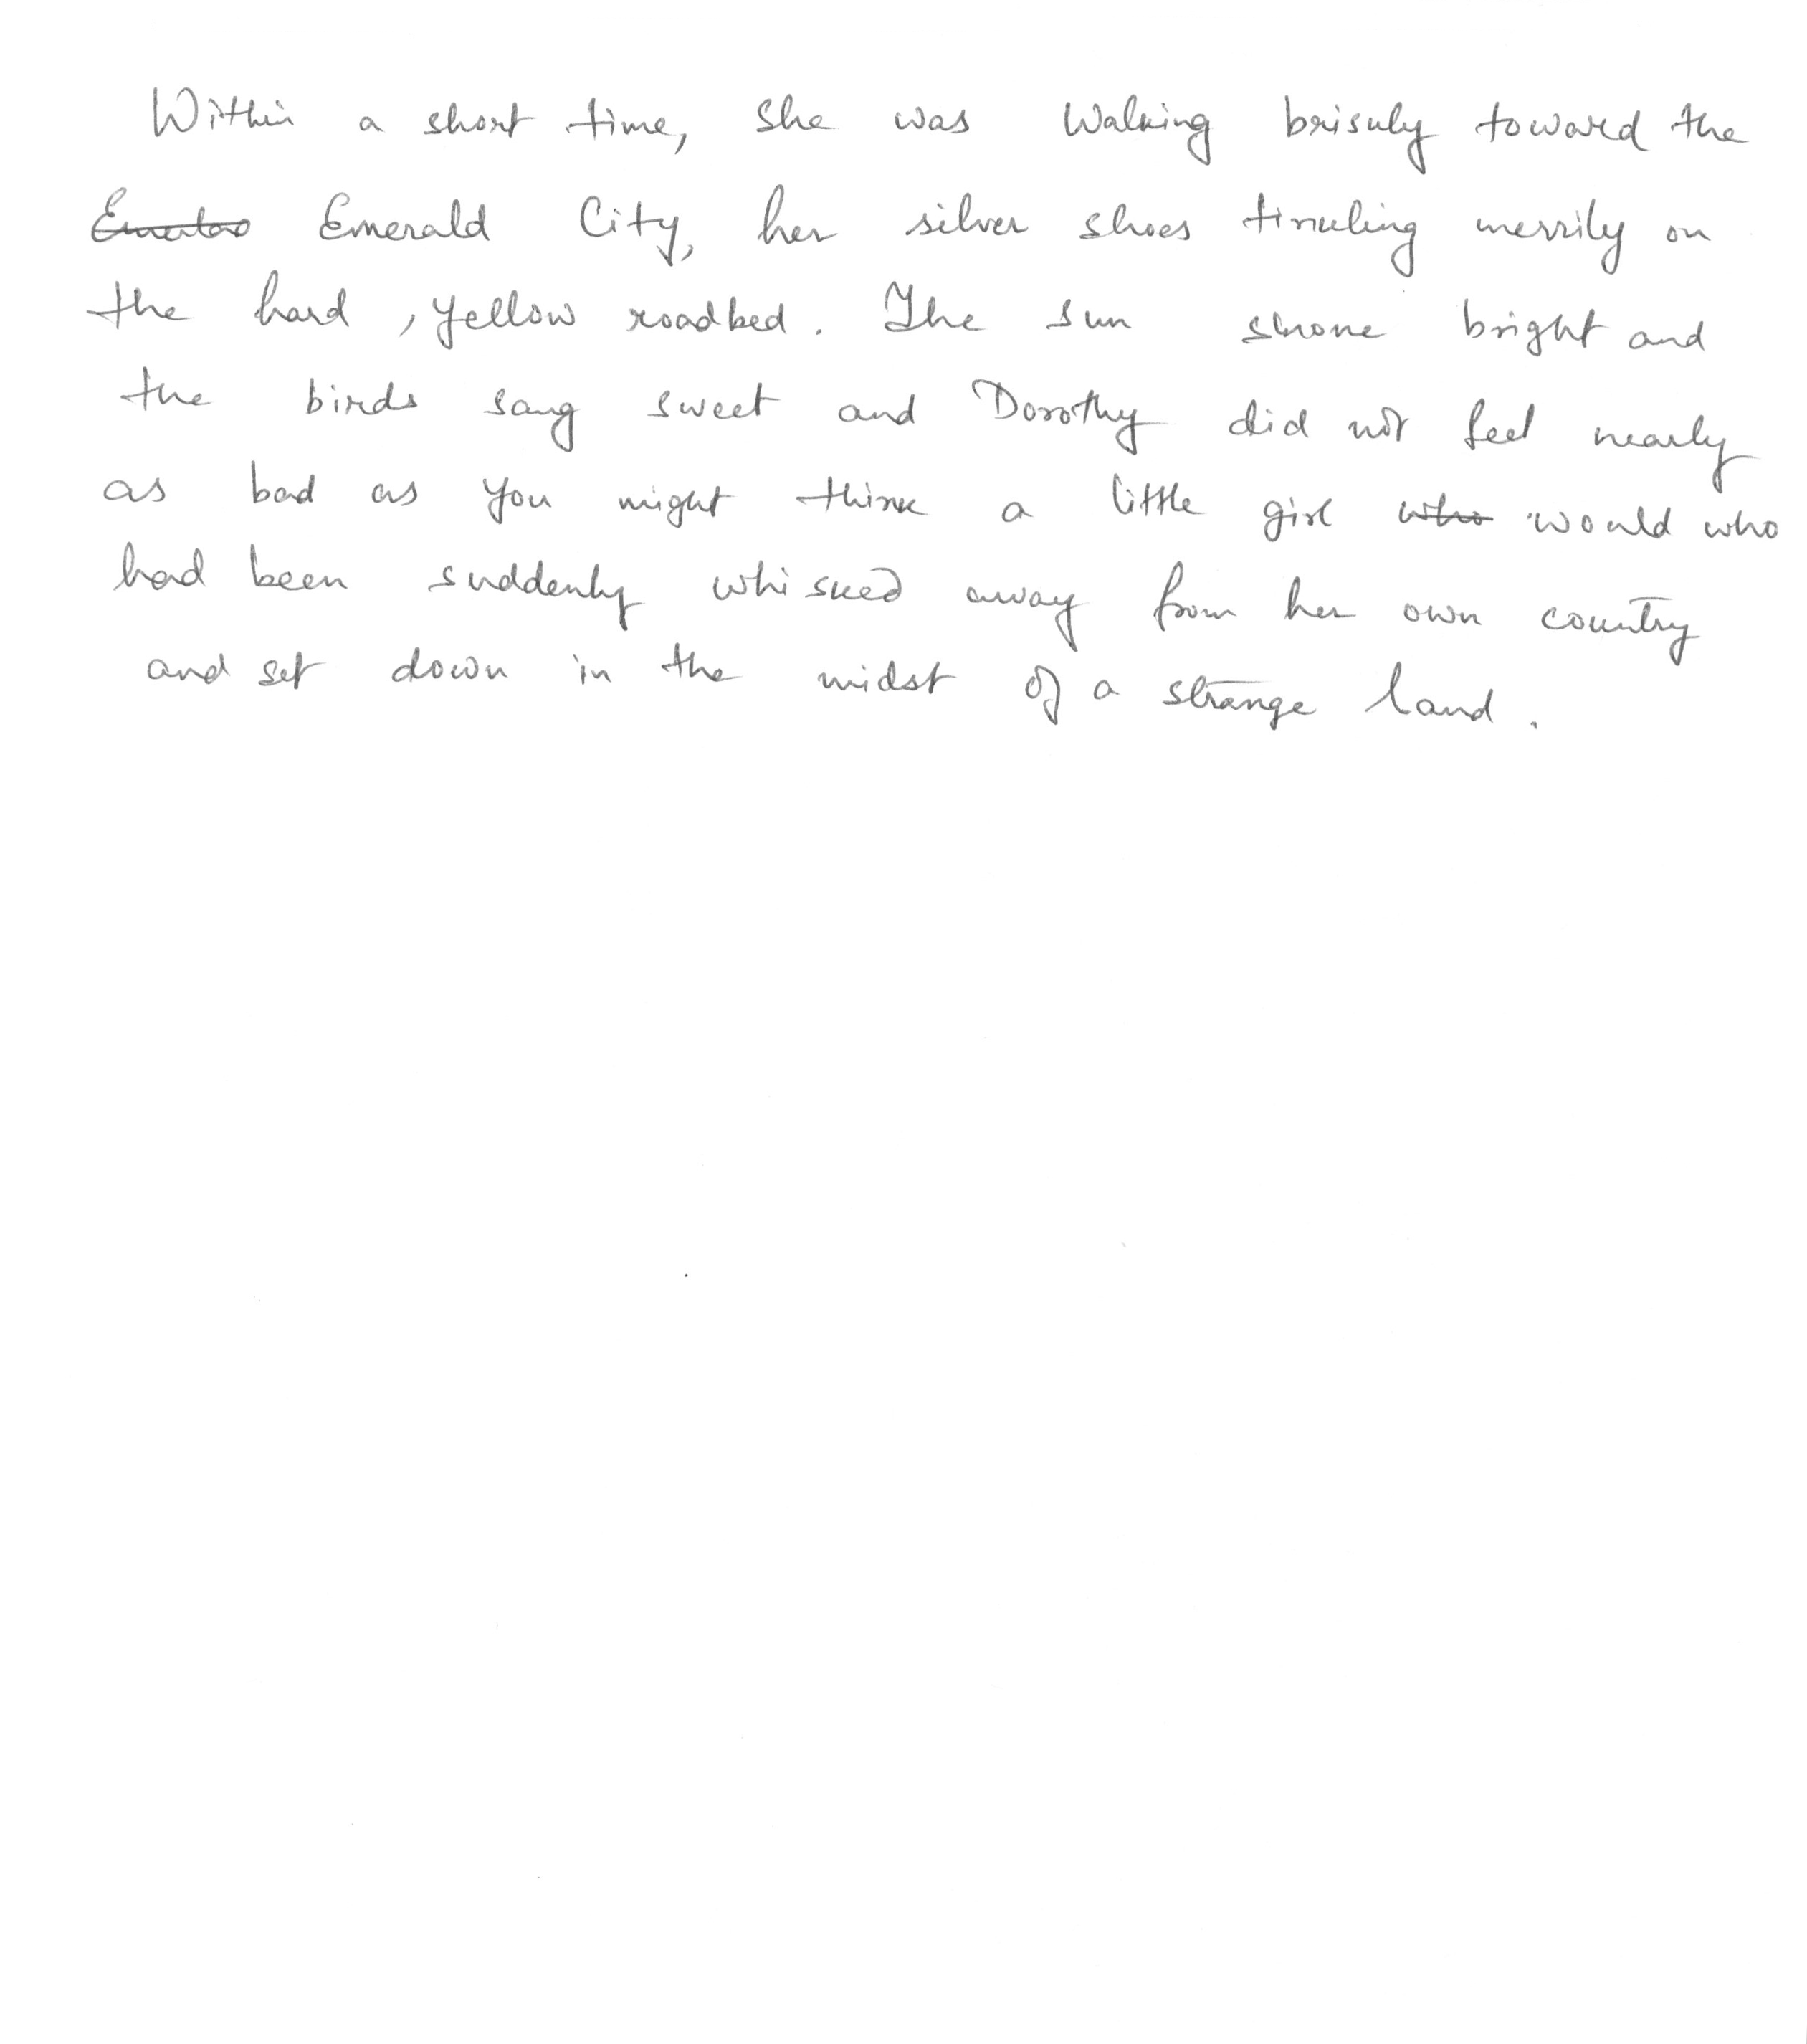 Within a short time, she was walking briskly toward the
Emerald City, her silver shoes tinkling merrily on
the hard, yellow roadbed. The sun shone bright and
the birds sang sweet and Dorothy did not feel nearly
as bad as you might think a little girl who would who
had been suddenly whisked away from her own country
and set down in the midst of a strange land.